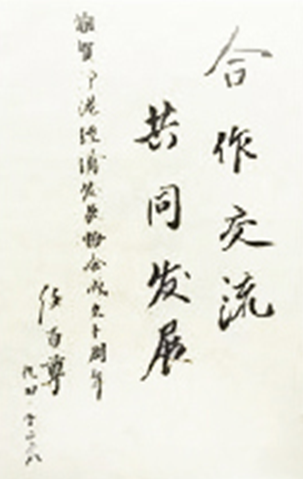 合作交流
共同发展
贺宁港经济发展协会成立十周年
任百尊